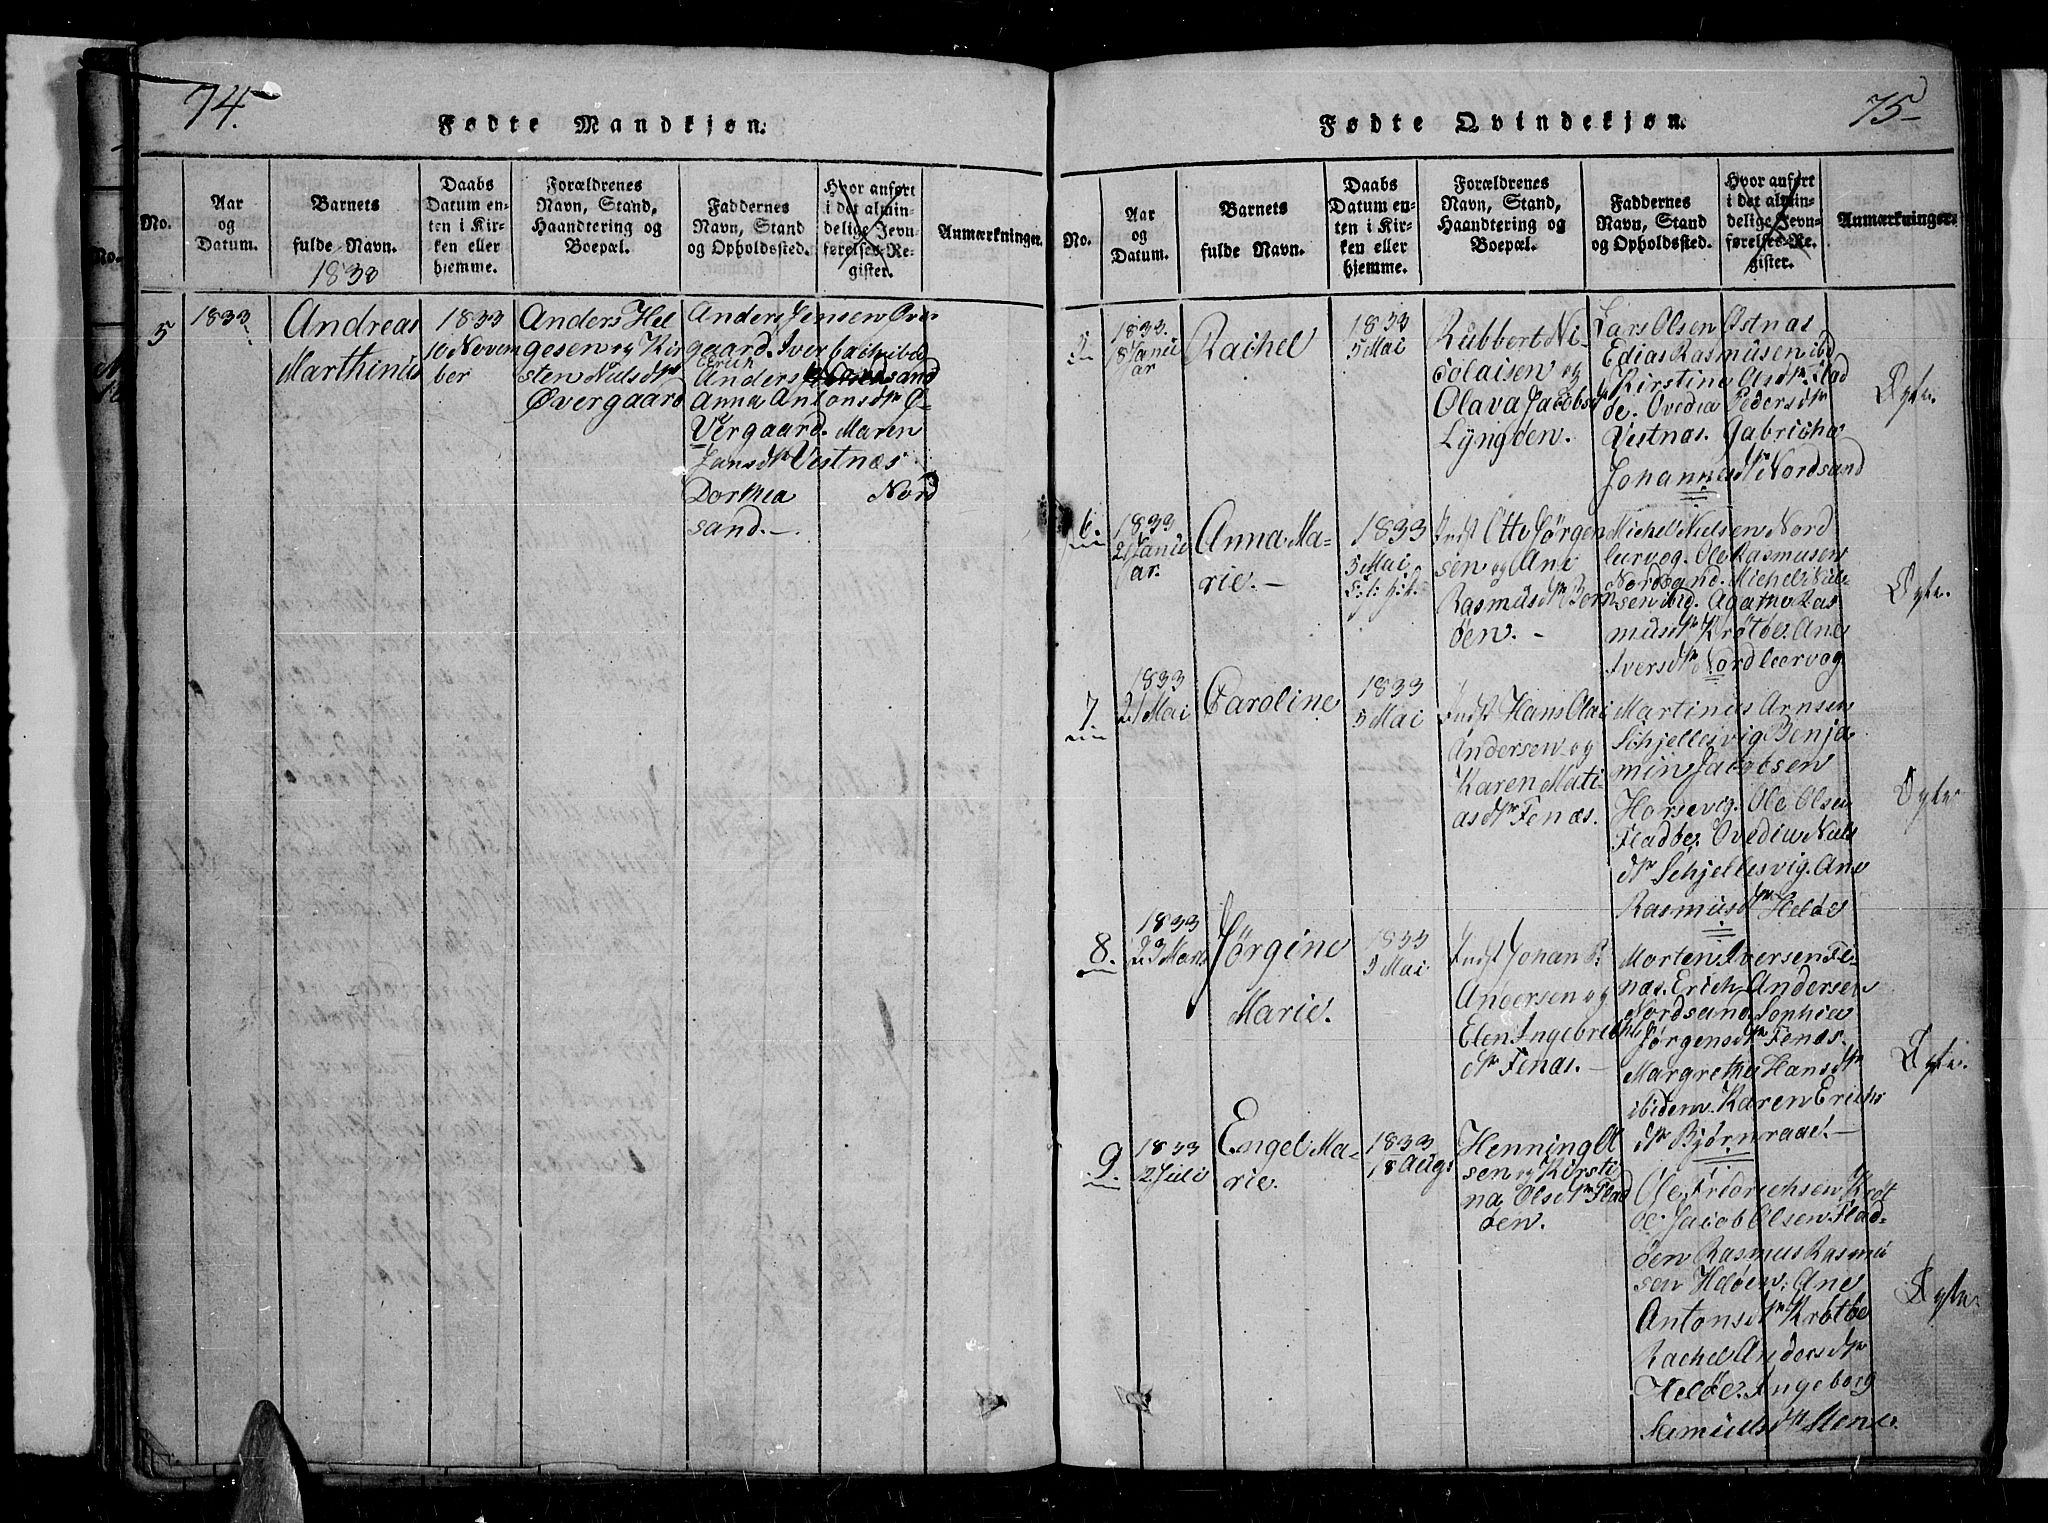 74.
Fødte Mandkjøn.
No.
Aar
og
Datum.
Barnets
fulde Navn.
1833
Daabs
Datum en-
ten i Kir-
ken eller
hjemme.
Forældrenes
Navn, Stand,
Haandtering og
Boepæl.
Faddernes
Navn, Stand
og Opholdssted.
Hvor anført
i det almin-
delige Jevn-
førelses-Re-
gister.
Anmærkninger.
5
1833
Andreas
Marthinus
1833
10 Novem
ber
Anders Hel
gesen og Kir
sten Nielsdtr
Øvergaard
Anders Jensen Øver
gaard. Iver
Erich
Anders Nordsand
Anna Antonsdtr Ø-
vergaard. Maren
Jansdtr Vestnæs
Dorthea Nord
sand.
75
Fødte Qvindekjøn.
No.
Aar
og
Datum.
Barnets
fulde Navn.
Daabs
Datum en-
ten i Kir-
ken eller
hjemme.
Forældrenes
Navn, Stand,
Haandtering og
Boepæl.
Faddernes
Navn, Stand
og Opholdssted.
Hvor anført
i det almin-
delige Jevn-
førelses-Re-
gister.
Anmærkninger.
5.
1833.
8 Janu
ar
Rachel
1833
5 Mai
Rubbert Ni-
colaisen og
Olava Jacobsd
Lyngøen.
Lars Olsen Østnas
Edias Rasmusen ibd
Kirstina Olsdtr. Flad
øe. Ovedia Pedersdtr
Vestnas.
Johannesdtr Nordsand
6.
1833
Janu
ar.
Anna Ma-
rie.
1833
5 Mai
Indst Otto Jørgen
sen og Ane
Rasmusdtr
øen.
Michel Nielsen Nord
leervog. Ole Rasmusen
Nordsand. Michel Niel-
sen ibid. Agathe Ras
musdtr Krøtøe. Ane
Iversdtr Nordleervog
7.
1833
Mai
Caroline
1833
5 Mai
Indst Hans Olai
Andersen og
Karen Mati-
asdtr Fenæs.
Martinus Arnsen
Schjellesvig Benja
min Jacobsen
Horsevig. Ole Olsen
Fladøe. Ovedia Niels
dtr Schjellesvig. Ane
Rasmusdtr Heløe
8.
1833
23 Marts
Jørgine
Marie.
1833
5 Mai
Indst Johan P.
Andersen og
Elen Ingebrechts
dtr Fenas.
Morten Iversen Fe-
nas. Erich Andersen
Nordsand Sophia
Jørgensdtr Fenas.
Margrethe Hansdtr
ibidem. Karen Erichs
dtr Bjørnraae.
9.
1833
2 Juli
Engel Ma-
rie.
1833
18 Aug:
Henning Ol
sen og Kirsti
na Olsdtr Flad
øen.
Ole Fridrichsen Krøt
øe. Jacob Olsen Flad-
øen Rasmus Rasmu
sen Heløen. Ane
Antonsdtr Krøtøe
Rachel Andersdtr
Heløe. Ingeborg
Samuelsdtr